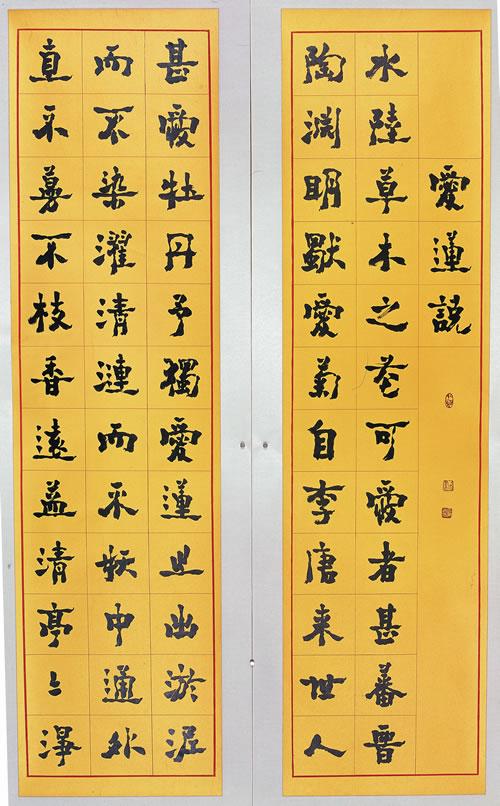 愛蓮説
水陸草木之花可愛者甚蕃晋
陶淵明獨愛菊自李唐来世人
甚愛牡丹予獨愛蓮之出淤泥
而不染濯清漣而不妖中通外
直不蔓不枝香遠益清亭〻淨